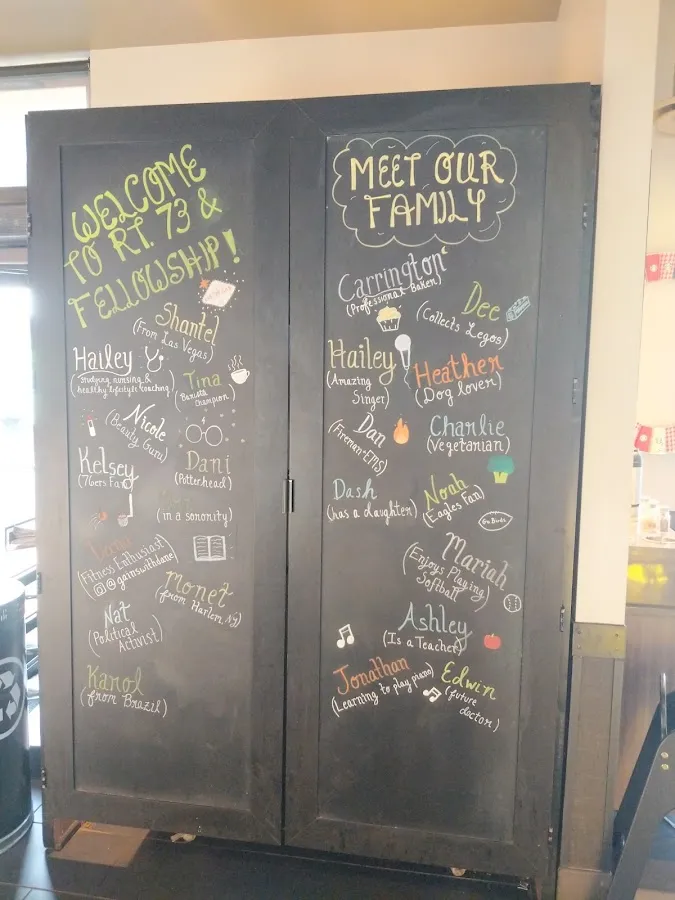 WELCOME
TO RT. 73 &
FELLOWSHIP!
Shantel
(From Las Vegas)
Hailey
(Studying nursing &
healthy lifestyle coaching)
Tina
(Barista
Champion)
Nicole
(Beauty Guru)
Kelsey
(76ers Fan)
Dani
(Potterhead)
(in a sonority)
(Fitness Enthusiast)
@gainswithdane)
Monet
(from Harlem, NY)
Nat
(Political
Activist)
Karol
(from Brazil)
MEET OUR
FAMILY
Carrington
(Professional Baker)
Dee
(Collects Legos)
Hailey
(Amazing
Singer)
Heather
(Dog lover)
Dan
(Fireman-EMS)
Charlie
(Vegetarian)
Dash
(has a daughter)
Noah
(Eagles Fan)
Go Birds
Mariah
(Enjoys Playing
Softball)
Ashley
(Is a Teacher)
Jonathan
(Learning to play piano)
Edwin
(future
doctor)